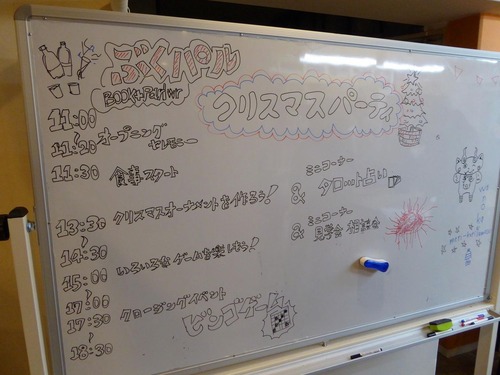 ぶくパル
BOOK+Parlwr
クリスマスパーティ
11:00
11:20 オープニング
セレモニー
11:30 食事スタート
ミニコーナー
& タロット占い
13:30 クリスマスオーナメントを作ろう!
14:30
ミニコーナー
& 見学会 相談会
15:00 いろいろなゲームを楽しもう!
17:00
17:30 クロージングイベント
ビンゴゲーム
18:30